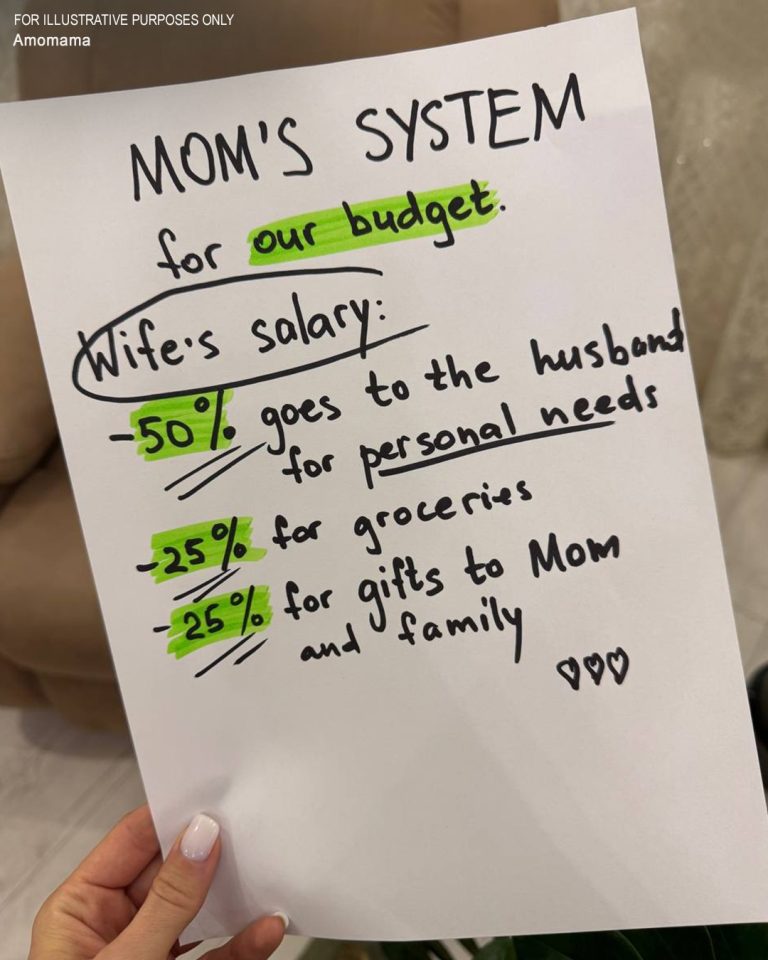 FOR ILLUSTRATIVE PURPOSES ONLY
Amomama
MOM'S SYSTEM
for our budget.
Wife's salary:
-50% goes to the husband
for personal needs
-25% for groceries
-25% for gifts to Mom
and family
♡♡♡